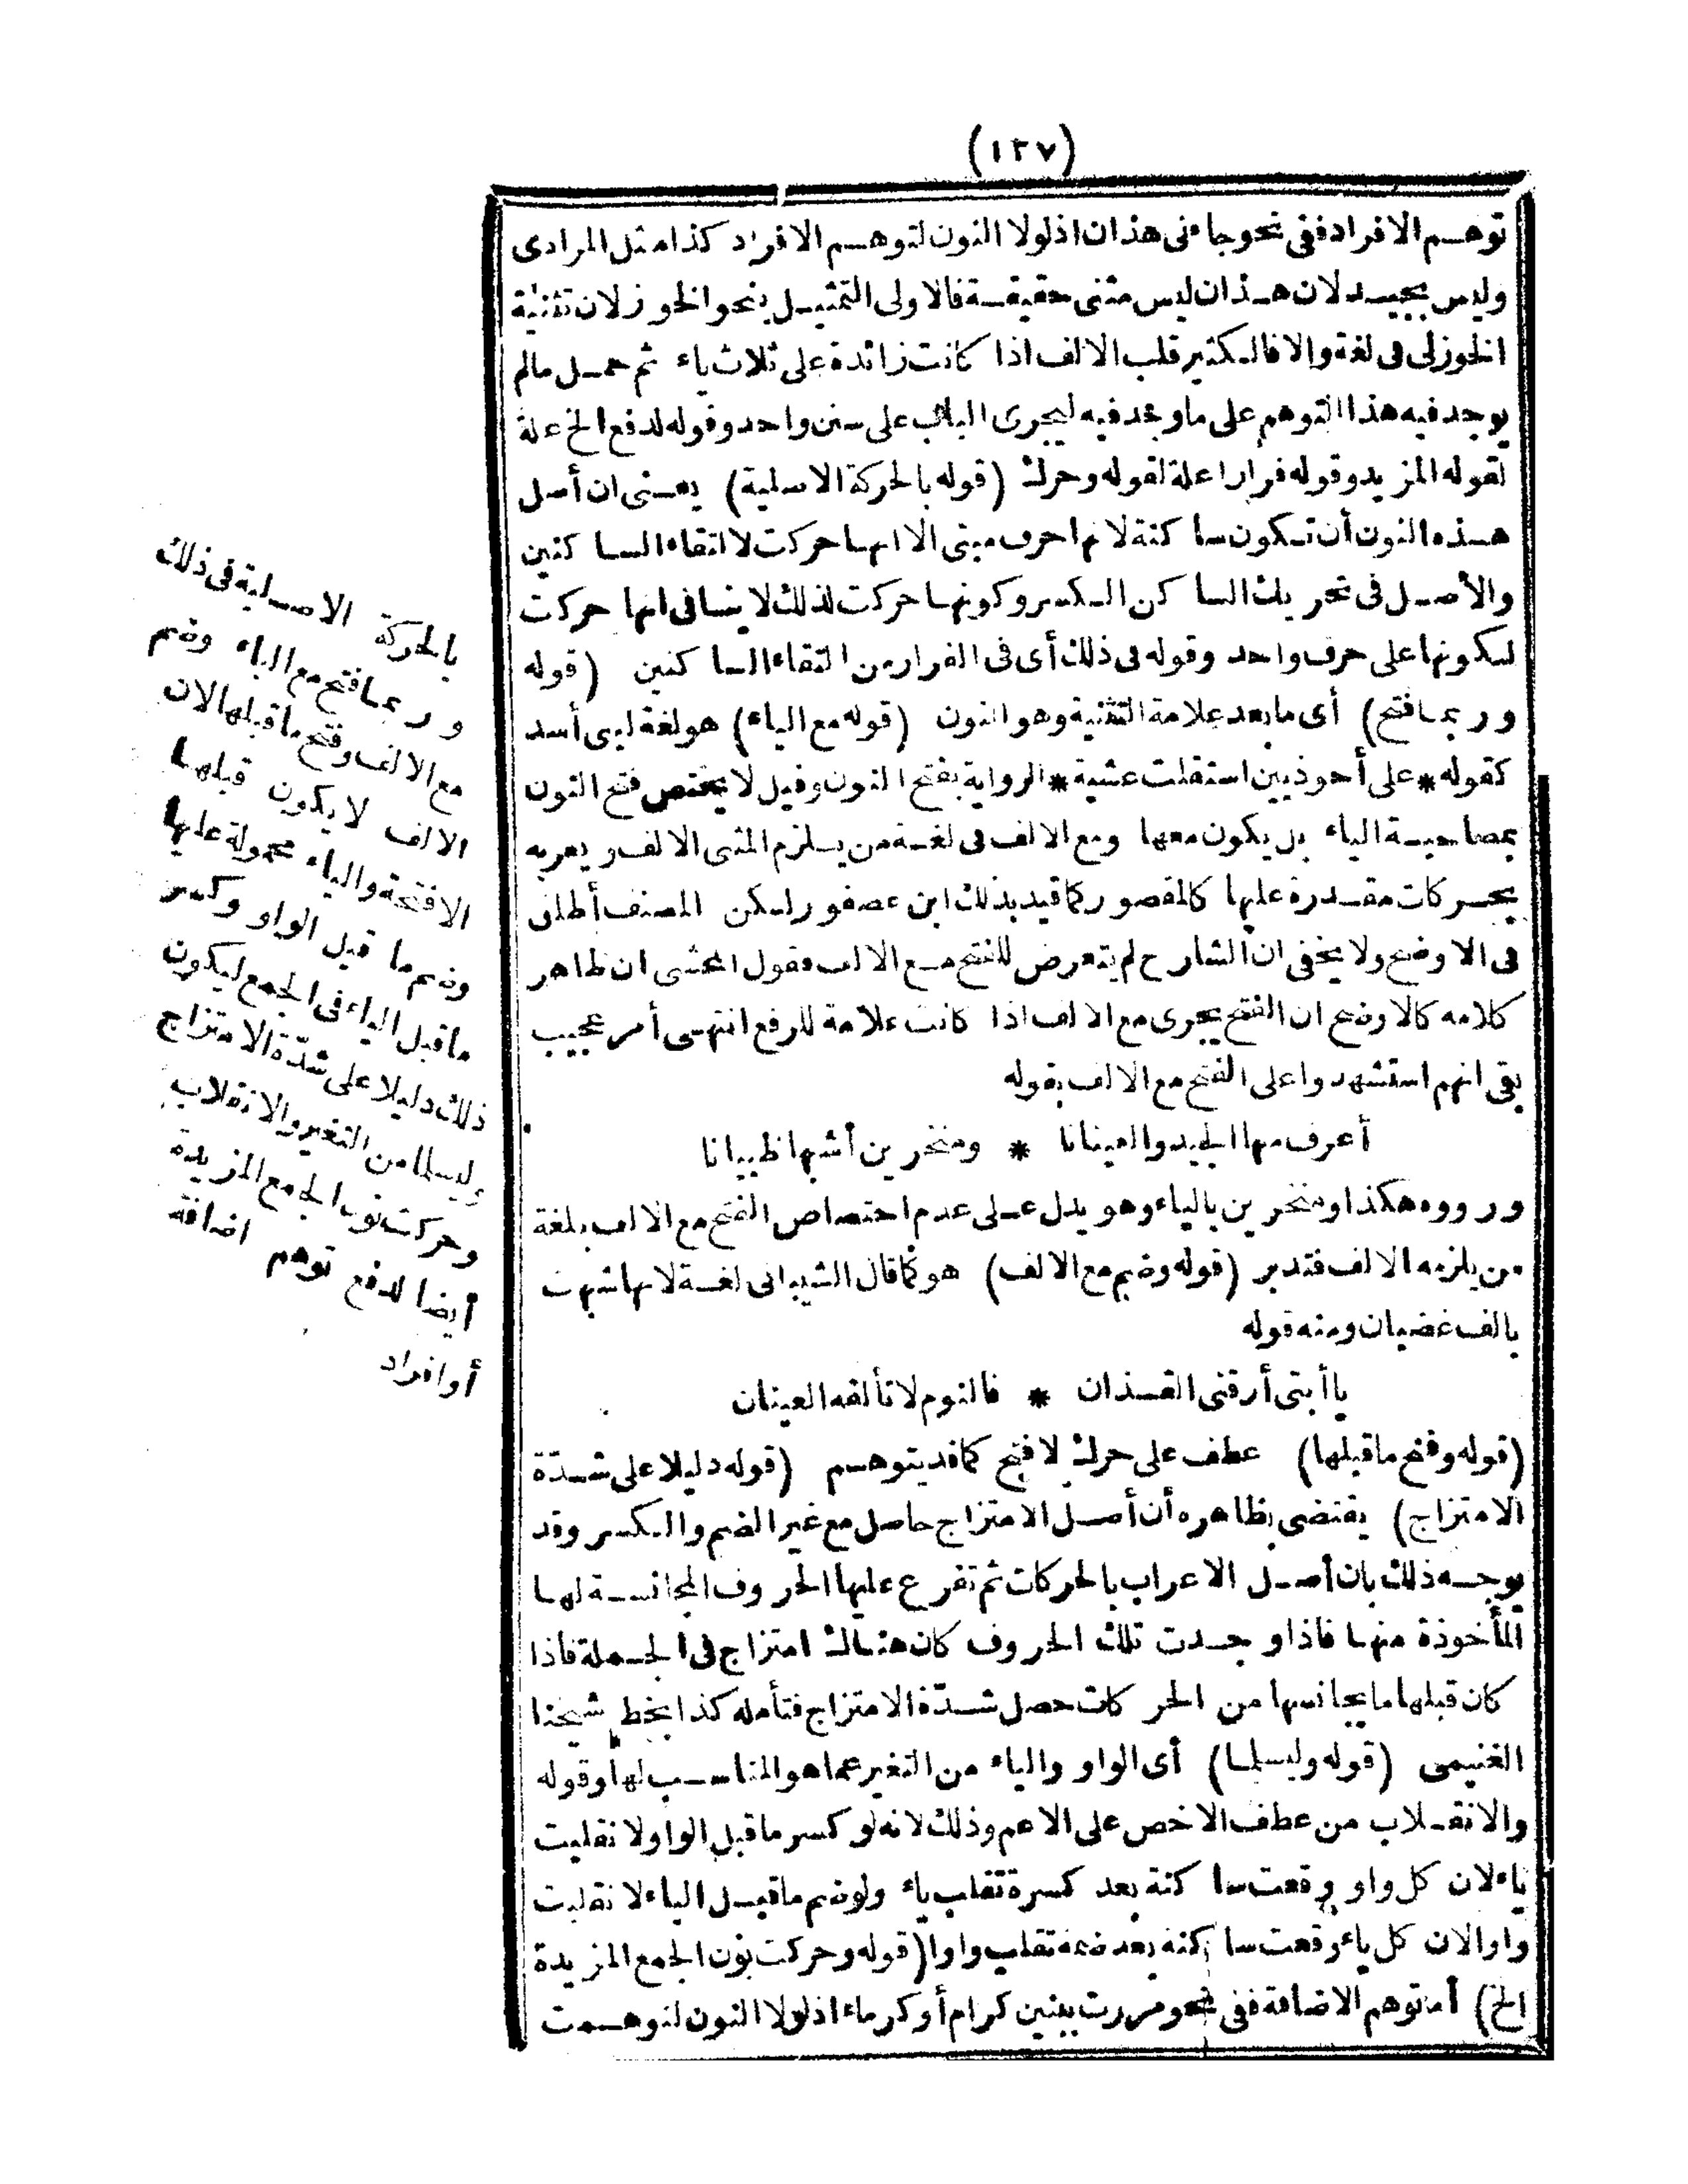 (١٢٧)
توهم الافراد ففى نحو جاءنى هذان اذ لولا النون لتوهم الافراد كذا مثل المرادى
وليس بجيد لان هذان ليس مثنى حقيقة فالاولى التمثيل بنحو الخوزلان تثنية
الخوزلى فى لغة والا فالكثير قلب الالف اذا كانت زائدة على ثلاث ياء ثم حمل مالم
يوجد فيه هذا التوهم على ما وجد فيه ليجرى الباب على سنن واحد وقوله لدفع الخ علة
لقوله المزيد وقوله فرارا علة لقوله وحرك (قوله بالحركة الاصلية) يعنى ان أصل
هذه النون أن تكون ساكنة لانها حرف مبنى الا انها حركت لالتقاء الساكنين
والأصل فى تحريك الساكن الكسر وكونها حركت لذلك لا ينافى انها حركت
لكونها على حرف واحد وقوله فى ذلك أى فى الفرار من التقاء الساكنين (قوله
وربما فتح) أى ما بعد علامة التثنية وهو النون (قوله مع الياء) هو لغة لبنى أسد
كقوله * على أحوذيين استقلت عشية * الرواية بفتح النون وقيل لا يختص فتح النون
بمصاحبة الياء بل يكون معها ومع الالف فى لغة من يلزم المثنى الالف ويعربه
بحركات مقدرة عليها كالمقصور كما قيد بذلك ابن عصفور ولكن المصنف أطلق
فى الاوضح ولا يخفى ان الشارح لم يتعرض للفتح مع الالف فقول المحشى ان ظاهر
كلامه كالاوضح ان الفتح يجرى مع الالف اذا كانت علامة للرفع انتهى أمر عجيب
بقى انهم استشهدوا على الفتح مع الالف بقوله
أعرف منها الجيد والعينانا * ومنخرين أشبها ظبيانا
ورووه هكذا ومنخرين بالياء وهو يدل على عدم اختصاص الفتح مع الالف بلغة
من يلزمه الالف فتدبر (قوله وضم مع الالف) هو كما قال الشيبانى لغة لانها شبهت
بالف غضبان ومنه قوله
يا أبتى أرقنى القذان * فالنوم لا تألفه العينان
(قوله وفتح ما قبلها) عطف على حرك لا فتح كما قد يتوهم (قوله دليلا على شدّة
الامتزاج) يقتضى بظاهره أن أصل الامتزاج حاصل مع غير الضم والكسر وقد
يوجه ذلك بان أصل الاعراب بالحركات ثم تفرع عليها الحروف المجانسة لها
المأخوذة منها فاذا وجدت تلك الحروف كان هناك امتزاج فى الجملة فاذا
كان قبلها ما يجانسها من الحركات حصل شدّة الامتزاج فتأمله كذا بخط شيخنا
الغنيمى (قوله وليسلما) أى الواو والياء من التغير عما هو المناسب لهما وقوله
والانقلاب من عطف الاخص على الاعم وذلك لانه لو كسر ما قبل الواو لانقلبت
ياء لان كل واو وقعت ساكنة بعد كسرة تقلب ياء ولو ضم ما قبل الياء لانقلبت
واوا لان كل ياء وقعت ساكنة بعد ضمة تقلب واوا (قوله وحركت نون الجمع المزيدة
الخ) أما توهم الاضافة ففى نحو مررت ببنين كرام أو كرماء اذ لولا النون لتوهمت
بالحركة الاصلية فى ذلك
وربما فتح مع الياء وضم
مع الالف وفتح ما قبلها لان
الالف لا يكون قبلها
الا فتحة والياء محمولة عليها
وضم ما قبل الواو وكسر
ما قبل الياء فى الجمع ليكون
ذلك دليلا على شدّة الامتزاج
وليسلما من التغير والانقلاب
وحركت نون الجمع المزيدة
أيضا لدفع توهم اضافة
أو افراد